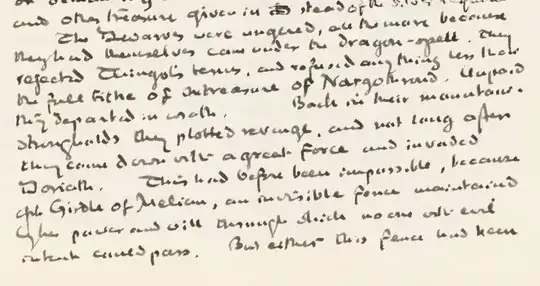 and other treasure given in stead of the silver
The Dwarves were angered, all the more because
they had themselves come under the dragon-spell. They
rejected Thingol's terms, and refused anything less than
the full tithe of the treasure of Nargothrond. Unpaid
they departed in wrath. Back in their mountain-
strongholds they plotted revenge, and not long after
they came down with a great force and invaded
Doriath. This had before been impossible, because
of the Girdle of Melian, an invisible fence maintained
by her power and will through which no one with evil
intent could pass. But either this fence had been